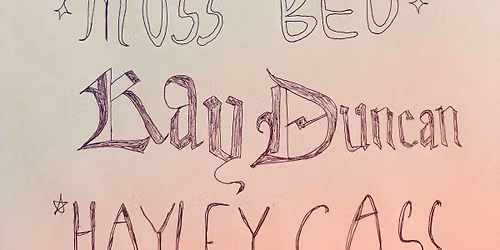 MOSS BED
Kay Duncan
HAYLEY CASS